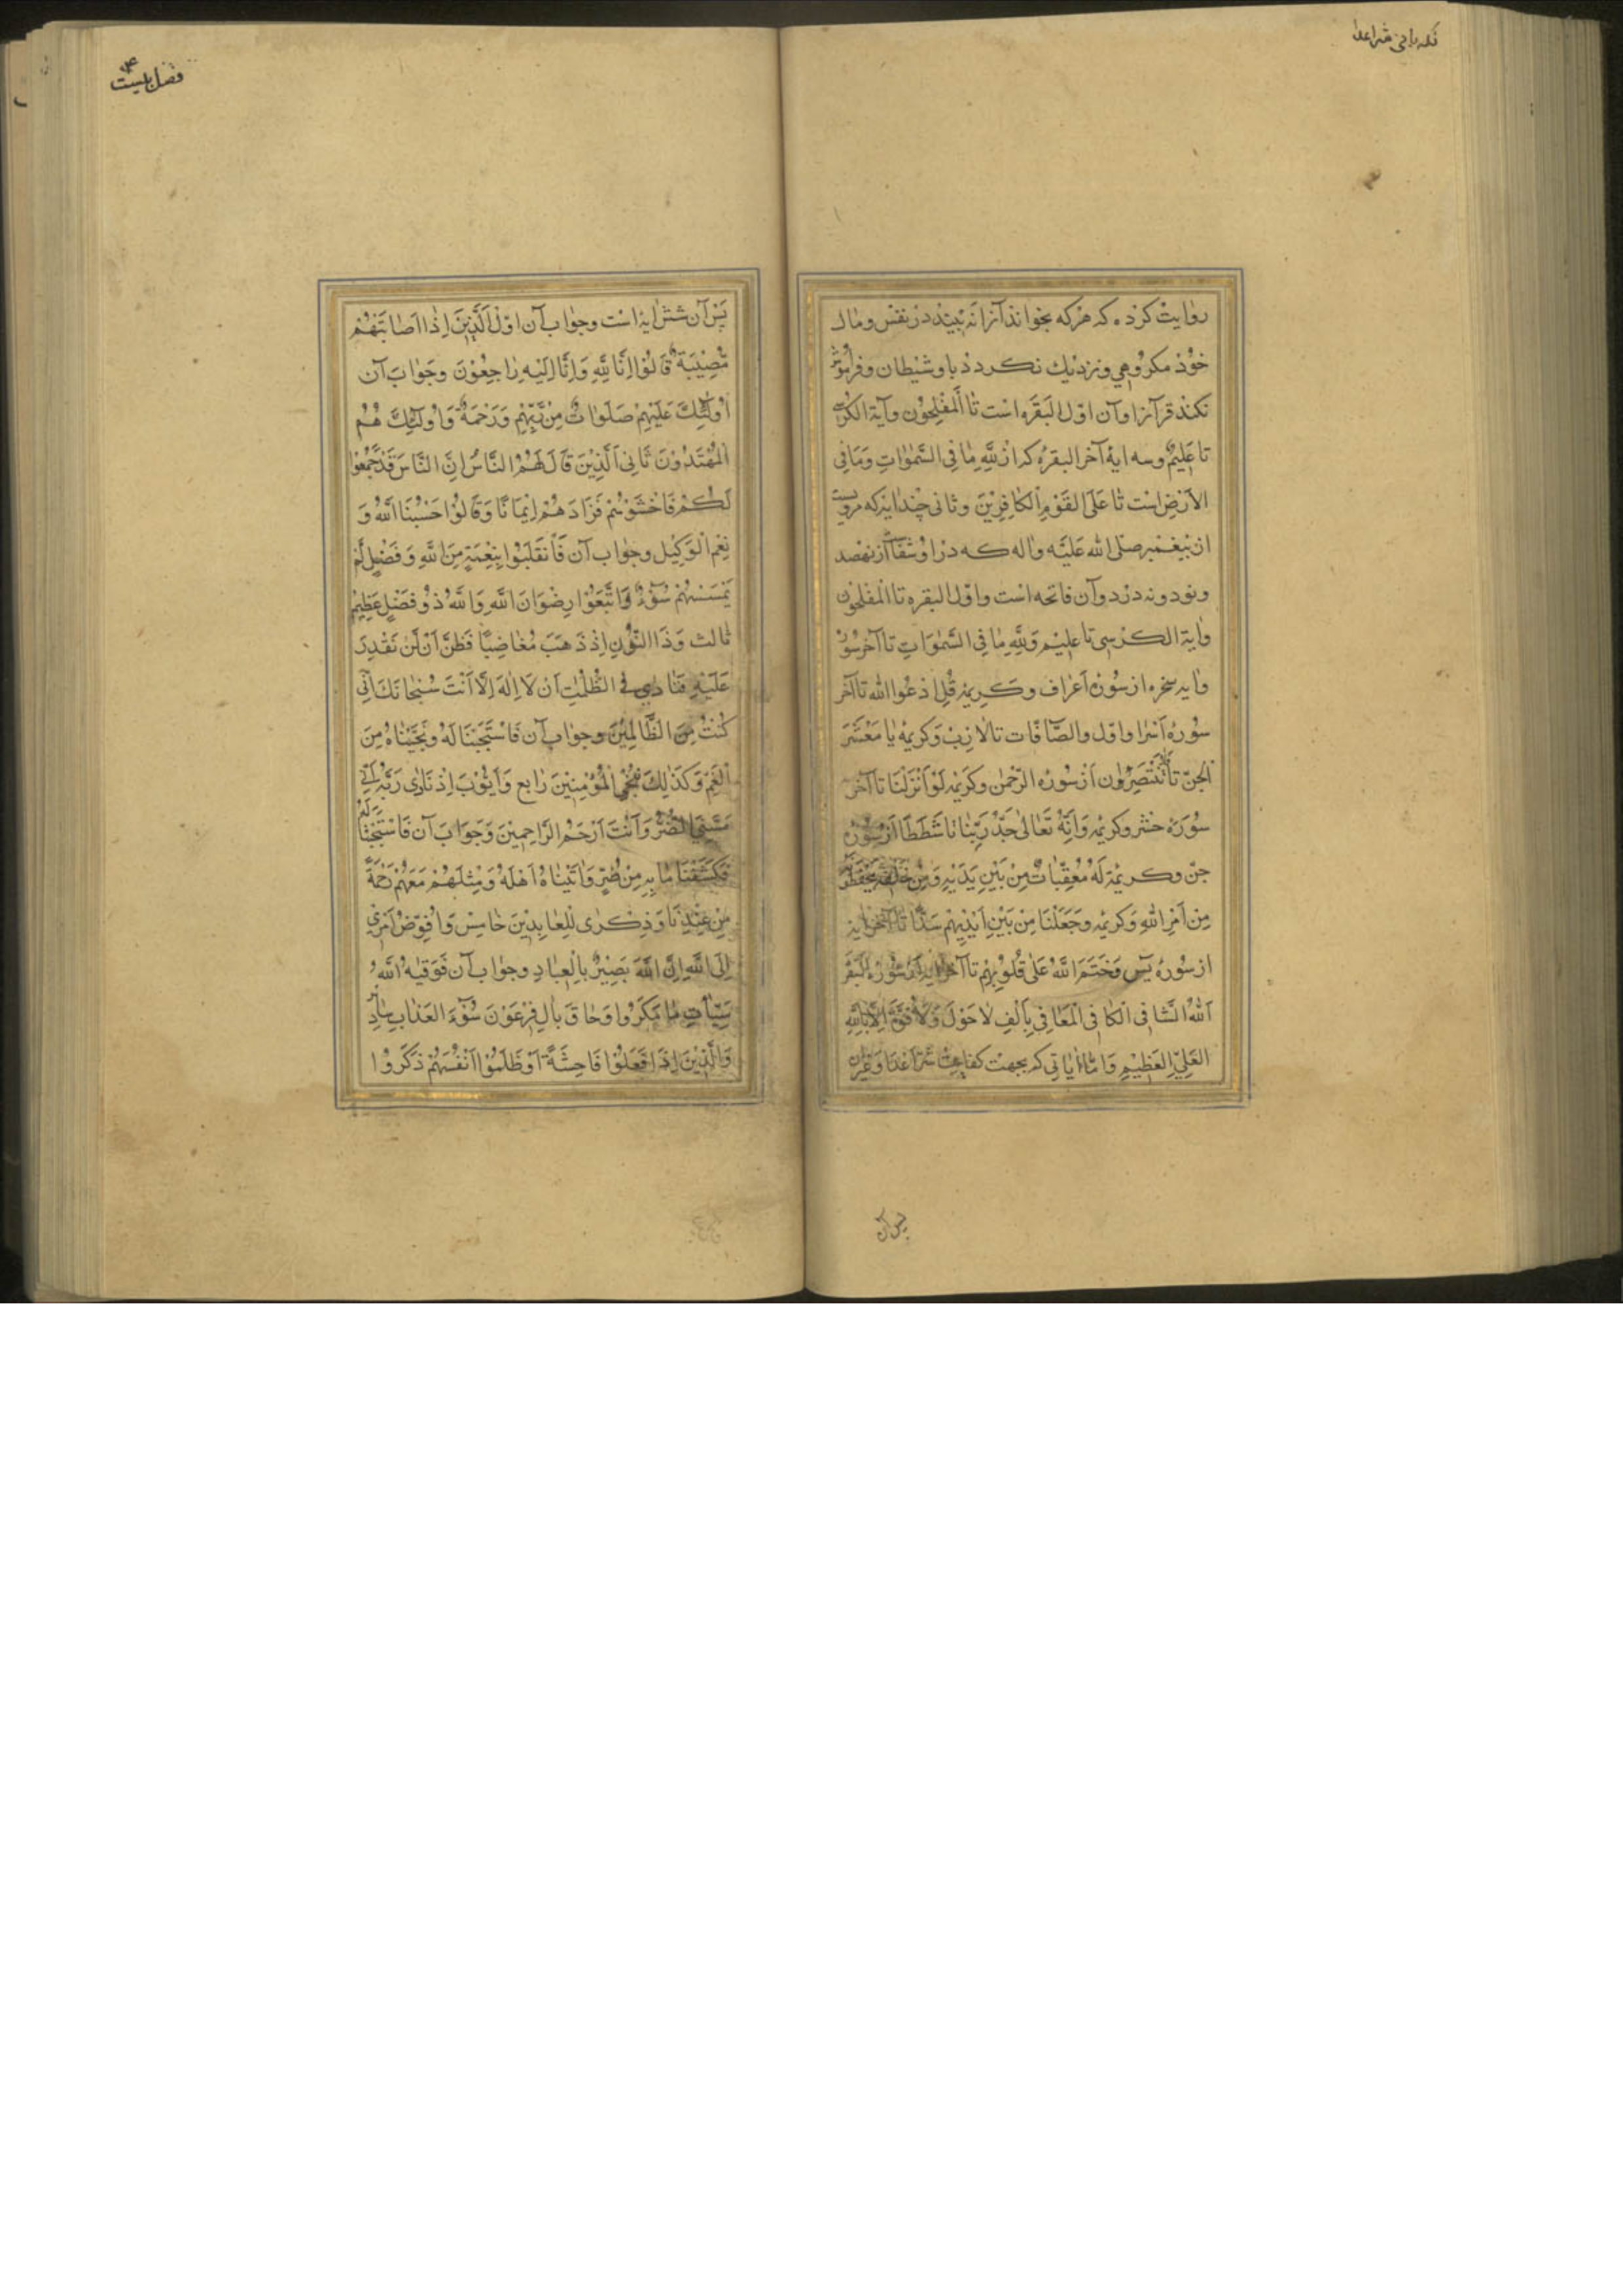 روایت کرده که هر که بخواند آنرا نه بیند در نفس و مال
خود مکروهی و نزدیک نکردد باو شیطان و فراموش
نکند قرآنرا و آن اول البقره است تا المفلحون و آیة الکرسی
تا علیم و سه ایهٔ آخر البقره که از لِلّٰهِ مَا فِی السَّمٰوَاتِ وَمَا فِی
الاَرْضِ است تا عَلَی القَوْمِ الْکَافِرِیْنَ و ثانی چند ایه که مرویست
از پیغمبر صلی الله علیه و اله که در او شفا از نهصد
و نود و نه درد و آن فاتحه است و اول البقره تا المفلحون
و ایة الکرسی تا علیم وَلِلّٰهِ مَا فِی السَّمٰوَاتِ تا آخر سوره
و ایه سخره از سوره اعراف و کریمه قُلِ ادْعُوا الله تا آخر
سورهٔ اسرا و اول والصّآفّات تا لازب و کریمهٔ یَا مَعْشَرَ
الجِنّ تا تَنْتَصِرَٰان از سوره الرحمن و کریمه لَوْ اَنْزَلْنَا تا آخر
سوره حشر و کریمه وَاَنَّهُ تَعَالٰی جَدُّ رَبِّنَا تا شَطَطًا از سوره
جن و کریمه لَهُ مُعَقِّبَاتٌ مِنْ بَیْنِ یَدَیْهِ وَمِنْ خَلْفِهِ یَحْفَظُونَهُ
مِن اَمْرِ اللّٰهِ وَ کریمه وَجَعَلْنَا مِنْ بَیْنِ اَیْدِیهِمْ سَدًّا تا آخر ایه
از سورهٔ یٓس وَ خَتَمَ اللّٰهُ عَلٰی قُلُوبِهِمْ تا آخر ایه از سورهٔ البقره
اَللّٰهُ الشَّافِی الْکَافِی الْمَعَافِی بِاَلْفِ لَا حَوْلَ وَلَا قُوَّةَ اِلَّا بِاللّٰهِ
العَلِیِّ العَظِیْمِ وَ امّا ایاتی که بجهت کفایت شرّ اعدا و غیران
پس آن
پس آن شش ایه است و جواب آن اول اَلَّذِینَ اِذَا اَصَابَتْهُمْ
مُصِیْبَةٌ قَالُوْا اِنَّا لِلّٰهِ وَاِنَّا اِلَیْهِ رَاجِعُوْنَ و جواب آن
اُولٰئِکَ عَلَیْهِمْ صَلَوَاتٌ مِنْ رَبِّهِمْ وَرَحْمَةٌ وَاُولٰئِکَ هُمُ
الْمُهْتَدُوْنَ ثَانِی اَلَّذِیْنَ قَالَ لَهُمُ النَّاسُ اِنَّ النَّاسَ قَدْ جَمَعُوْا
لَکُمْ فَاخْشَوْهُمْ فَزَادَهُمْ اِیْمَانًا وَقَالُوْا حَسْبُنَا اللّٰهُ وَ
نِعْمَ الْوَکِیْل و جواب آن فَانْقَلَبُوْا بِنِعْمَةٍ مِنَ اللّٰهِ وَفَضْلٍ لَمْ
یَمْسَسْهُمْ سُوْٓءٌ وَاتَّبَعُوْا رِضْوَانَ اللّٰهِ وَاللّٰهُ ذُوْ فَضْلٍ عَظِیْمٍ
ثالث وَذَا النُّوْنِ اِذْ ذَهَبَ مُغَاضِبًا فَظَنَّ اَنْ لَنْ نَقْدِرَ
عَلَیْهِ فَنَادٰی فِی الظُّلُمٰتِ اَنْ لَا اِلٰهَ اِلَّا اَنْتَ سُبْحَانَکَ اِنِّی
کُنْتُ مِنَ الظَّالِمِیْنَ و جواب آن فَاسْتَجَبْنَا لَهُ وَنَجَّیْنَاهُ مِنَ
الْغَمِّ وَکَذٰلِکَ نُنْجِی الْمُؤْمِنِیْنَ رابع وَاَیُّوْبَ اِذْ نَادٰی رَبَّهُ اَنِّی
مَسَّنِیَ الضُّرُّ وَاَنْتَ اَرْحَمُ الرَّاحِمِیْنَ وَ جواب آن فَاسْتَجَبْنَا لَهُ
فَکَشَفْنَا مَا بِهِ مِنْ ضُرٍّ وَاٰتَیْنَاهُ اَهْلَهُ وَمِثْلَهُمْ مَعَهُمْ رَحْمَةً
مِنْ عِنْدِنَا وَذِکْرٰی لِلْعَابِدِیْنَ خامس وَاُفَوِّضُ اَمْرِی
اِلَی اللّٰهِ اِنَّ اللّٰهَ بَصِیْرٌ بِالْعِبَادِ و جواب آن فَوَقٰیهُ اللّٰهُ
سَیِّاٰتِ مَا مَکَرُوْا وَحَاقَ بِاٰلِ فِرْعَوْنَ سُوْٓءُ الْعَذَابِ سادس
وَالَّذِیْنَ اِذَا فَعَلُوْا فَاحِشَةً اَوْ ظَلَمُوْا اَنْفُسَهُمْ ذَکَرُوْا
فصل بیست